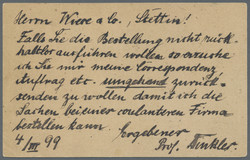 Herrn Wiese & Co., Stettin!
Falls Sie die Bestellung nicht rück-
haltlos ausführen wollen so ersuche
ich Sie mir meine Correspondenz,
Auftrag etc. umgehend zurück-
senden zu wollen damit ich die
Sachen bei einer coulanteren Firma
bestellen kann. Ergebener
4/III 99 Prof. Winkler